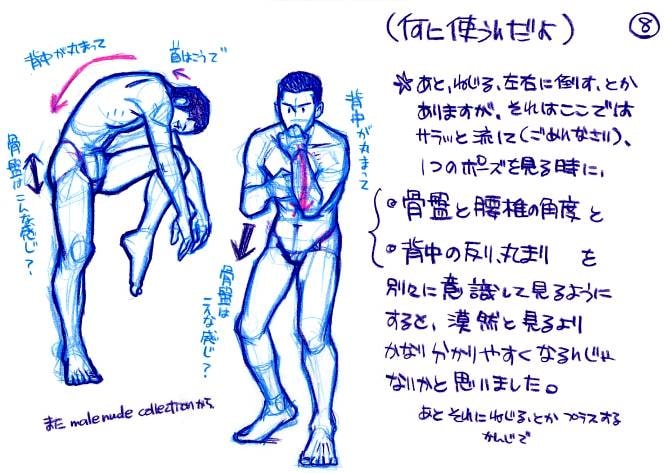 (何に使うんだよ)
⑧
背中が丸まって
首はこうで
骨盤はこんな感じ?
背中が丸まって
骨盤は
こんな感じ?
また male nude collectionから
☆あと、ねじる、左右に倒す、とか
ありますが、それはここでは
サラッと流して(ごめんなさい)、
1つのポーズを見る時に、
•骨盤と腰椎の角度と
•背中の反り、丸まり を
別々に意識して見るように
すると、漠然と見るより
かなり分かりやすくなるんじゃ
ないかと思いました。
あと それにねじる、とか プラスする
かんじで